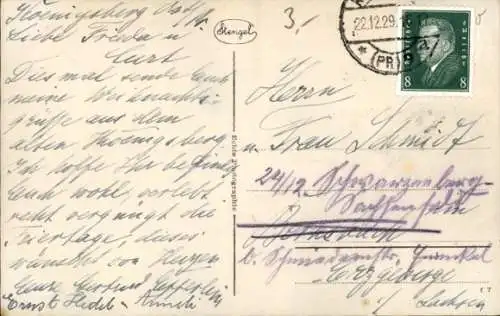 Königsberg Ostpr
Liebe Frieda u
Curt
Dies mal sende Euch
meine Weihnachts-
grüsse aus dem
alten Königsberg.
Ich hoffe Ihr befindet
Euch wohl verlebt
recht vergnügt die
Feiertage, dieses
wünscht von Herzen
Eure Gertrud
Ernst Hedel
Stengel
3,-
22.12.29
(PR)
8 8
Echte Photographie
Herrn
u. Frau Schmidt
24/12 Schwarzenberg-
Sachsenfeld
b.
Erzgebirge
i/ Sachsen